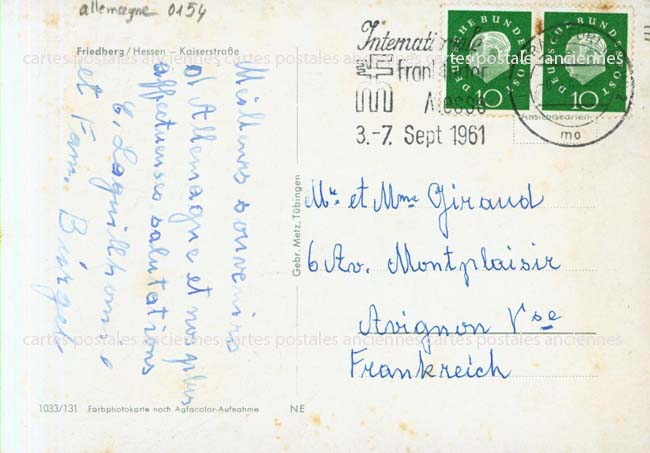 allemagne 0154
Friedberg / Hessen – Kaiserstraße
Meilleurs souvenirs
d'Allemagne et nos plus
affectueuses salutations
et Fam. Bürgel
Internationale
Frankfurter
Messe
3.-7. Sept 1961
DEUTSCHE BUNDESPOST
10
DEUTSCHE BUNDESPOST
10
mo
Ansichtskarten
Mr et Mme Giraud
6 Av. Montplaisir
Avignon Vse
Frankreich
Gebr. Metz, Tübingen
1033/131 Farbphotokarte nach Agfacolor-Aufnahme NE
cartes postales anciennes cartes postales anciennes cartes postales anciennes
cartes postales anciennes cartes postales anciennes cartes postales anciennes